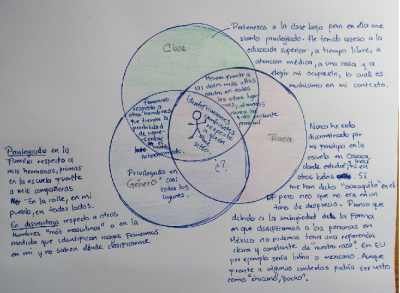 Clase
Pertenezco a la clase baja pero en ella me
siento privilegiado. He tenido acceso a la
educación superior, a tiempo libre, a
atención médica, a una casa y a
elegir mi ocupación, lo cual es
muchísimo en mi contexto.
frente a
respecto a
otros hombres
que tienen la
posibilidad de
identificaciones
respecto a
Raza
Nunca he sido
discriminado por
mi fenotipo en la
escuela en Oaxaca,
otros lados. Sí
me han dicho "oaxaquito" en el
DF pero creo que no era en un
tono de desprecio. Pienso que
debido a la ambigüedad de la forma
en que clasificamos a las personas en
México no podemos tener una referencia
clara y constante de "nuestra raza". en EU
por ejemplo sería latino o mexicano. Aunque
frente a algunos contextos podría ser visto
como "chicano", "pocho".
¿?
Privilegiado en
Género casi
todos los
lugares.
Privilegiado en la
familia respecto a
mis hermanas, primas
en la escuela frente
a mis compañeras
No en la calle, en mi
pueblo, en todos lados.
En desventaja respecto a otros
hombres "más masculinos" o en la
medida que identifican rasgos femeninos
en mi y no saben dónde clasificarme.